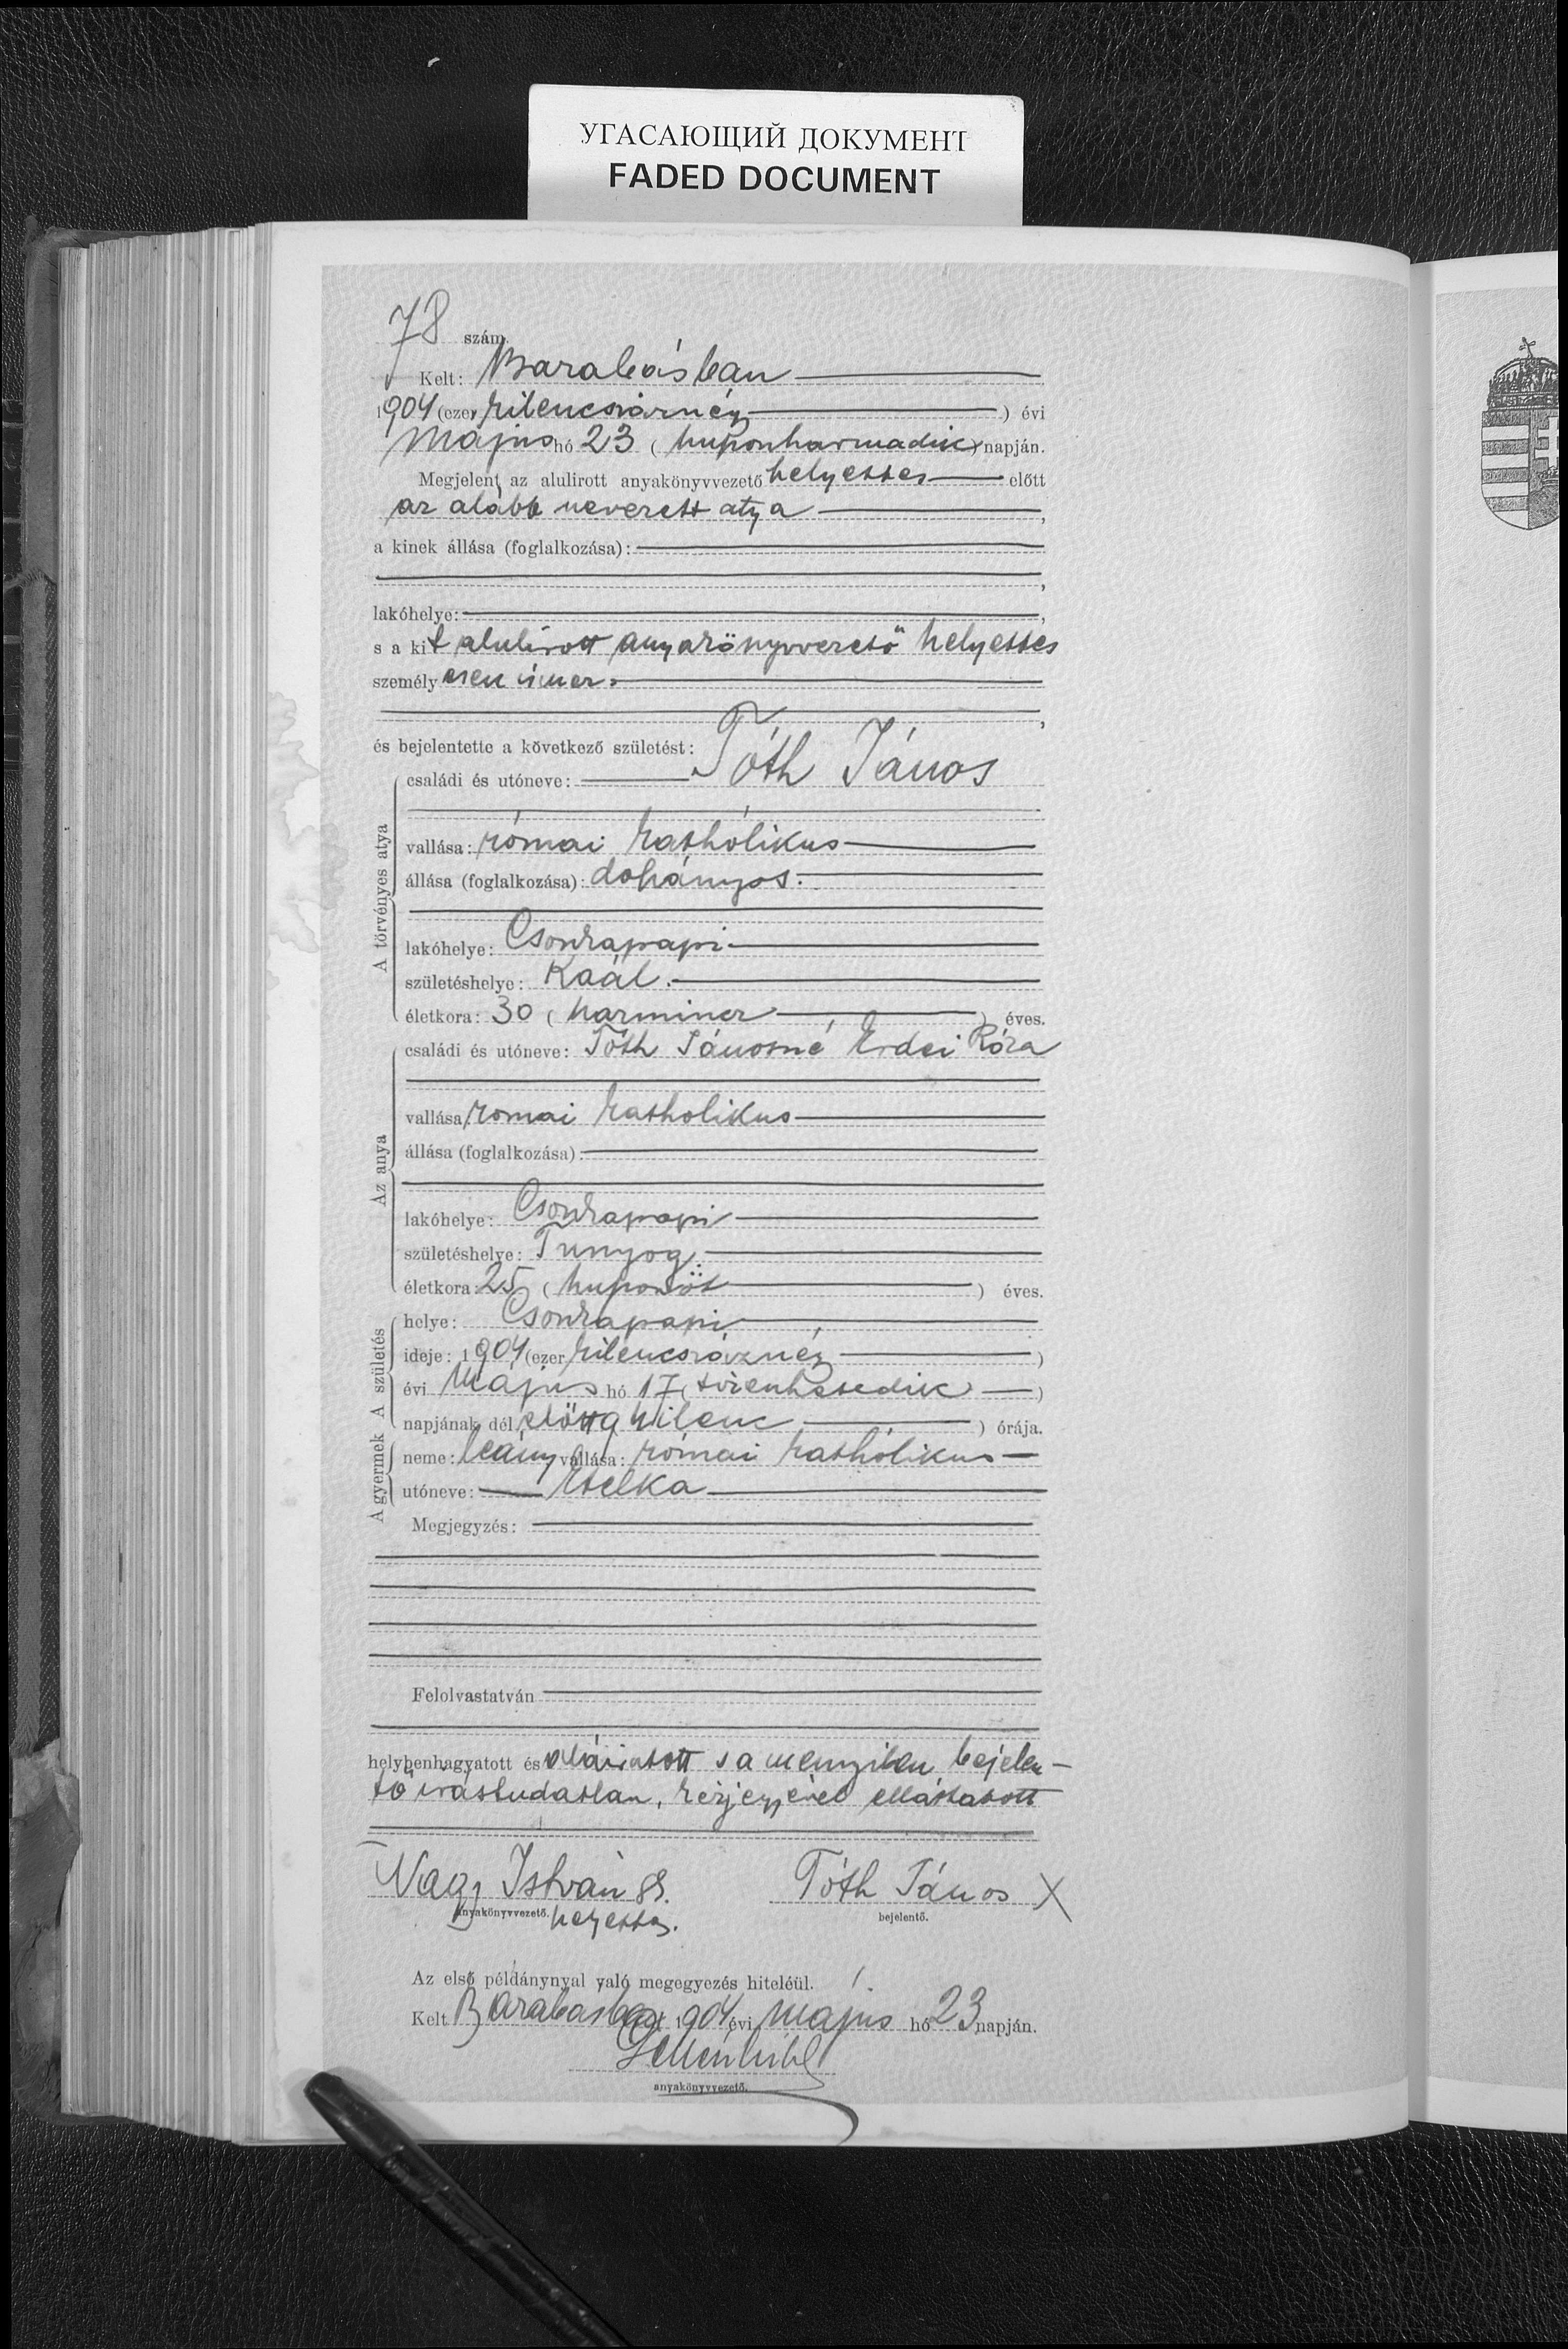 УГАСАЮЩИЙ ДОКУМЕНТ
FADED DOCUMENT
78 szám.
Kelt: Barabásban
1904 (ezer kilencszáznégy) évi
Május hó 23 (huszonharmadik) napján.
Megjelent az alulirott anyakönyvvezető helyettes előtt
az alább nevezett atya,
a kinek állása (foglalkozása):
,
lakóhelye: ,
s a kit alulírott anyakönyvvezető helyettes
személyesen ismer.
,
és bejelentette a következő születést:
A törvényes atya
családi és utóneve: Tóth János
vallása: római kathólikus
állása (foglalkozása): dohányos.
lakóhelye: Csonkapapi
születéshelye: Kaál.
életkora: 30 (harmincz) éves.
Az anya
családi és utóneve: Tóth Jánosné Erdei Róza
vallása: romai katholikus
állása (foglalkozása):
lakóhelye: Csonkapapi
születéshelye: Tunyog.
életkora: 25 (huszonöt) éves.
A születés
helye: Csonkapapi
ideje: 1904 (ezer kilencszáznégy)
évi Május hó 17 (tizenhetedik)
napjának dél előtt 9 (kilenc) órája.
A gyermek
neme: leány vallása: római kathólikus
utóneve: Etelka
Megjegyzés:
Felolvastatván
helybenhagyatott és aláíratott s a mennyiben bejelen-
tő irástudatlan, kézjegyével elláttatott
Nagy István Tóth János X
anyakönyvvezető. helyettes. bejelentő.
Az első példánynyal való megegyezés hiteléül.
Kelt Barabásban 1904 évi május hó 23 napján.
anyakönyvvezető.